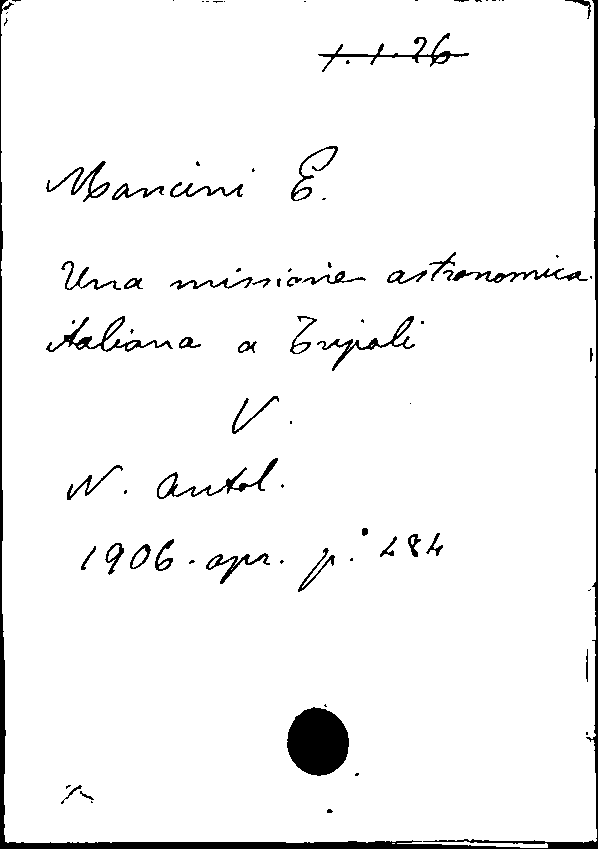 1.1.26
Mancini E.
Una missione astronomica
italiana a Tripoli
V.
N. Antol.
1906. apr. p.